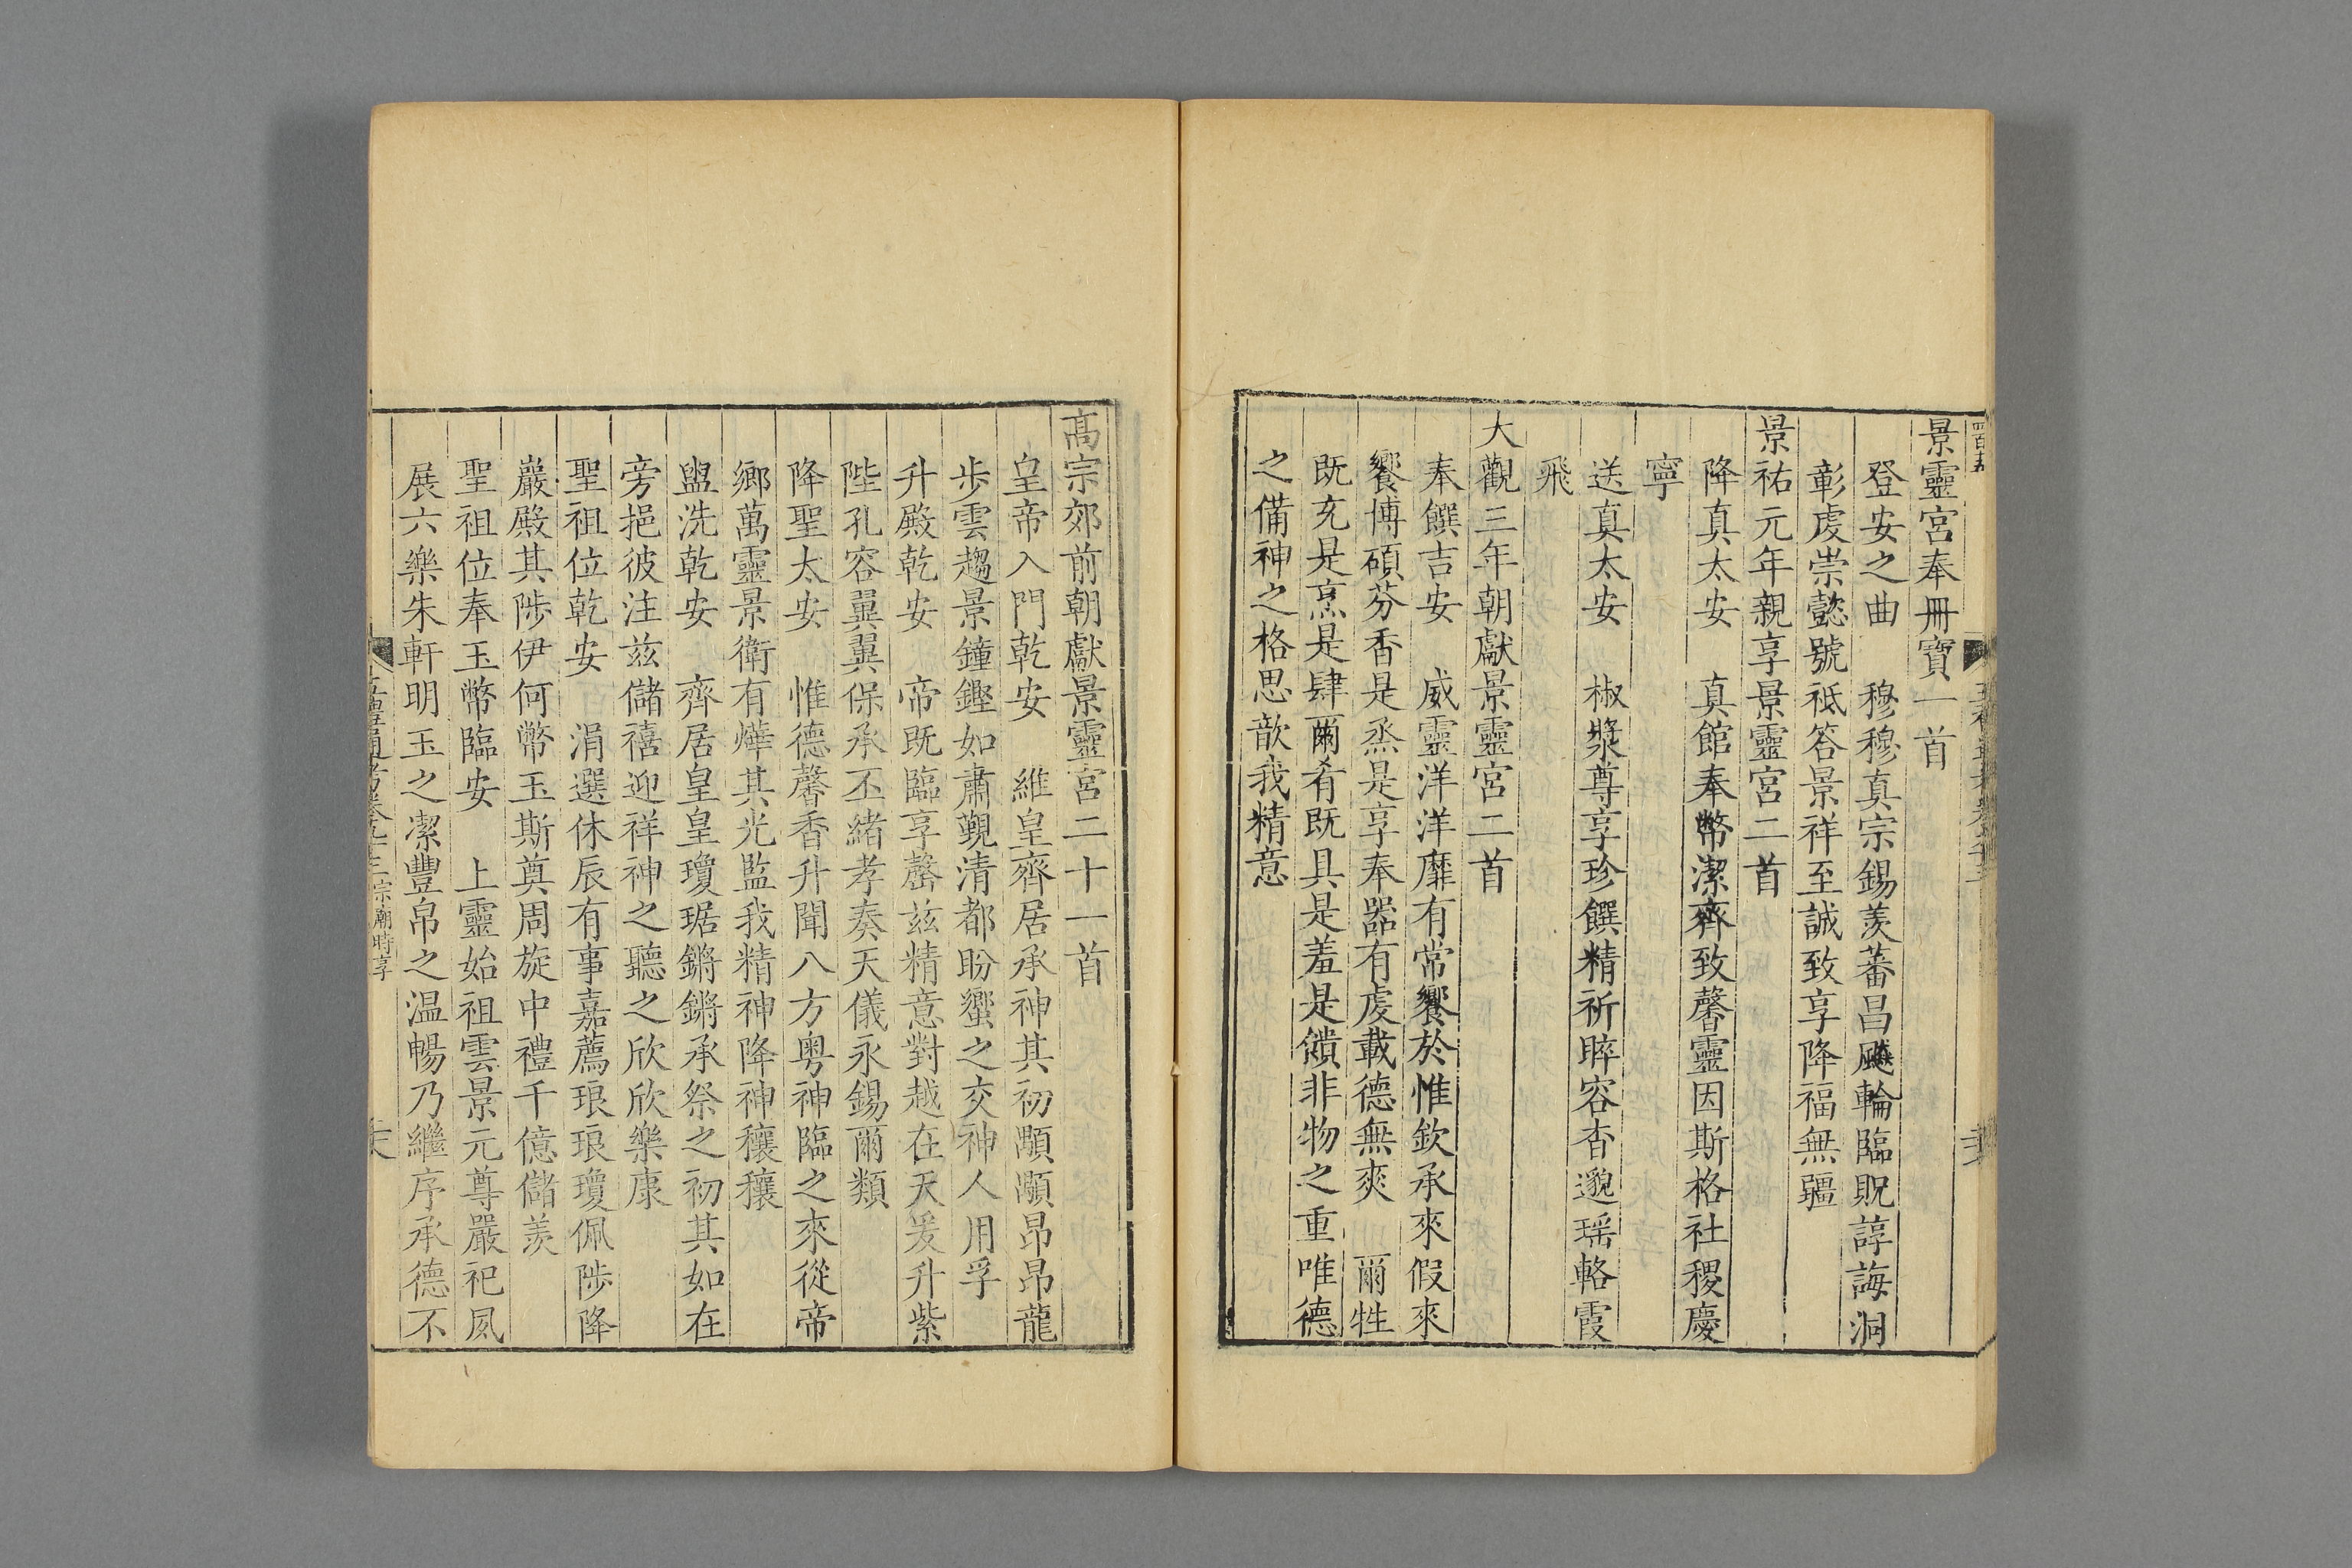 景靈宮奉冊寶一首
登安之曲　穆穆真宗錫羨蕃昌飇輪臨貺諄誨洞
彰虔崇懿號祗答景祥至誠致享降福無疆
景祐元年親享景靈宮二首
降真太安　真館奉幣潔齊致馨靈因斯格社稷慶
寧
送真太安　椒漿尊享珍饌精祈睟容杳邈瑶輅霞
飛
大觀三年朝獻景靈宮二首
奉饌吉安　威靈洋洋靡有常饗於惟欽承來假來
饗博碩芬香是烝是享奉噐有虔載德無爽　爾牲
既充是烹是肆爾肴既具是羞是饋非物之重唯德
之備神之格思歆我精意
高宗郊前朝獻景靈宮二十一首
皇帝入門乾安　維皇齊居承神其初顒顒昂昂龍
步雲趨景鐘鏗如肅覲清都肹蠁之交神人用孚
升殿乾安　帝既臨享罄茲精意對越在天爰升紫
陛孔容翼翼保承丕緒孝奏天儀永錫爾類
降聖太安　惟德馨香升聞八方粤神臨之來從帝
鄉萬靈景衛有燁其光監我精神降神神穰穰
盥洗乾安　齊居皇皇瓊琚鏘鏘承祭之初其如在
旁挹彼注茲儲禧迎祥神之聽之欣欣樂康
聖祖位乾安　涓選休辰有事嘉薦琅琅瓊佩陟降
嚴殿其陟伊何幣玉斯奠周旋中禮千億儲羨
聖祖位奉玉幣臨安　上靈始祖雲景元尊嚴祀夙
展六樂朱軒明玉之潔豐帛之温暢乃繼序承德不
宗廟時享